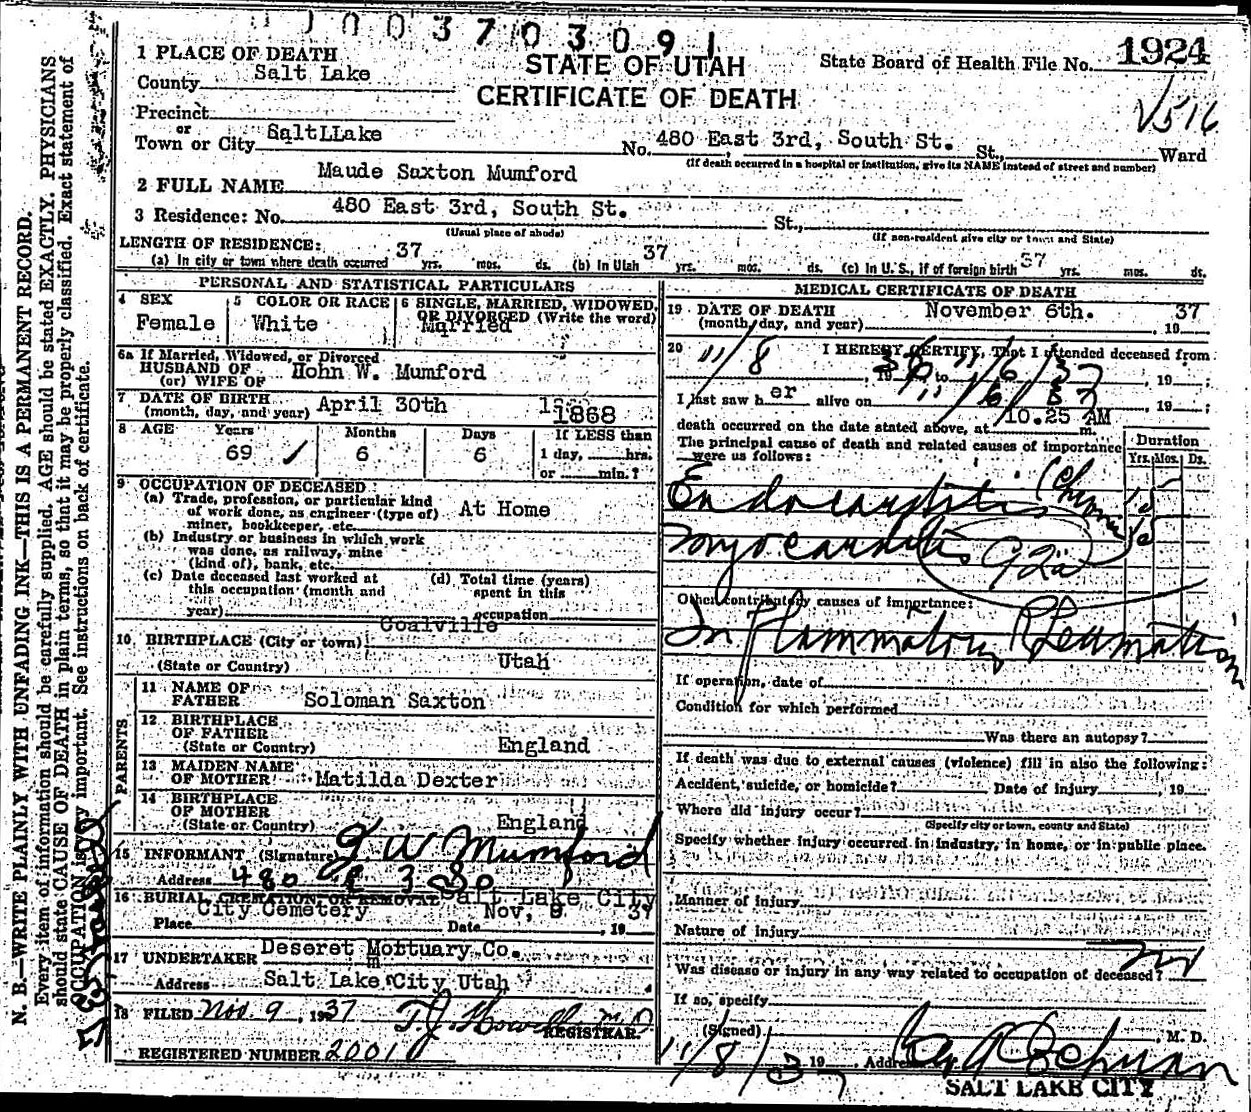 003703091
1 PLACE OF DEATH
STATE OF UTAH
CERTIFICATE OF DEATH
State Board of Health File No. 1924
County Salt Lake
V516
Precinct
or
Town or City SaltLLake
No. 480 East 3rd, South St. St., Ward
(If death occurred in a hospital or institution, give its NAME instead of street and number)
2 FULL NAME Maude Saxton Mumford
3 Residence: No. 480 East 3rd, South St. St.,
(Usual place of abode)
(If non-resident give city or town and State)
LENGTH OF RESIDENCE:
(a) In city or town where death occurred 37 yrs. mos. ds. (b) In Utah 37 yrs. mos. ds. (c) In U.S., if of foreign birth 37 yrs. mos. ds.
PERSONAL AND STATISTICAL PARTICULARS
4 SEX
Female
5 COLOR OR RACE
White
6 SINGLE, MARRIED, WIDOWED, OR DIVORCED (Write the word)
Married
6a If Married, Widowed, or Divorced
HUSBAND OF
(or) WIFE OF
Hohn W. Mumford
7 DATE OF BIRTH
(month, day, and year) April 30th 1868
8 AGE Years Months Days If LESS than
69 6 6 1 day, hrs.
or min.?
9 OCCUPATION OF DECEASED:
(a) Trade, profession, or particular kind
of work done, as engineer (type of)
miner, bookkeeper, etc.
At Home
(b) Industry or business in which work
was done, as railway, mine
(kind of), bank, etc.
(c) Date deceased last worked at
this occupation (month and
year)
(d) Total time (years)
spent in this
occupation
10 BIRTHPLACE (City or town) Coalville
(State or Country) Utah
PARENTS
11 NAME OF
FATHER Soloman Saxton
12 BIRTHPLACE
OF FATHER
(State or Country) England
13 MAIDEN NAME
OF MOTHER Matilda Dexter
14 BIRTHPLACE
OF MOTHER
(State or Country) England
15 INFORMANT (Signature) J. W Mumford
Address 480 E 3 So
16 BURIAL, CREMATION, OR REMOVAL Salt Lake City
Place City Cemetery Date Nov, 9 , 19 37
17 UNDERTAKER Deseret Mottuary Co.
m
Address Salt Lake City Utah
18 FILED Nov. 9, 1937 T. J. Howells M.D.
REGISTRAR.
REGISTERED NUMBER 2001
MEDICAL CERTIFICATE OF DEATH
19 DATE OF DEATH
(month, day, and year) November 6th. , 19 37
20 I HEREBY CERTIFY, That I attended deceased from
11/8 , 19 36, to 11/6/37 , 19 ;
I last saw h er alive on 11/6/37 , 19 ;
death occurred on the date stated above, at 10.25 AM m.
The principal cause of death and related causes of importance
were as follows:
Duration
Yrs. Mos. Ds.
Endocarditis (Chronic 15
Myocarditis 92a
Other contributory causes of importance:
Inflammatory Rheumatism
If operation, date of
Condition for which performed
Was there an autopsy?
If death was due to external causes (violence) fill in also the following:
Accident, suicide, or homicide? Date of injury , 19
Where did injury occur?
(Specify city or town, county and State)
Specify whether injury occurred in industry, in home, or in public place.
Manner of injury
Nature of injury
Was disease or injury in any way related to occupation of deceased? no
If so, specify
(Signed) , M. D.
11/8/37 19 , Address
SALT LAKE CITY
N. B.—WRITE PLAINLY WITH UNFADING INK—THIS IS A PERMANENT RECORD.
Every item of information should be carefully supplied. AGE should be stated EXACTLY. PHYSICIANS
should state CAUSE OF DEATH in plain terms, so that it may be properly classified. Exact statement of
OCCUPATION is very important. See instructions on back of certificate.